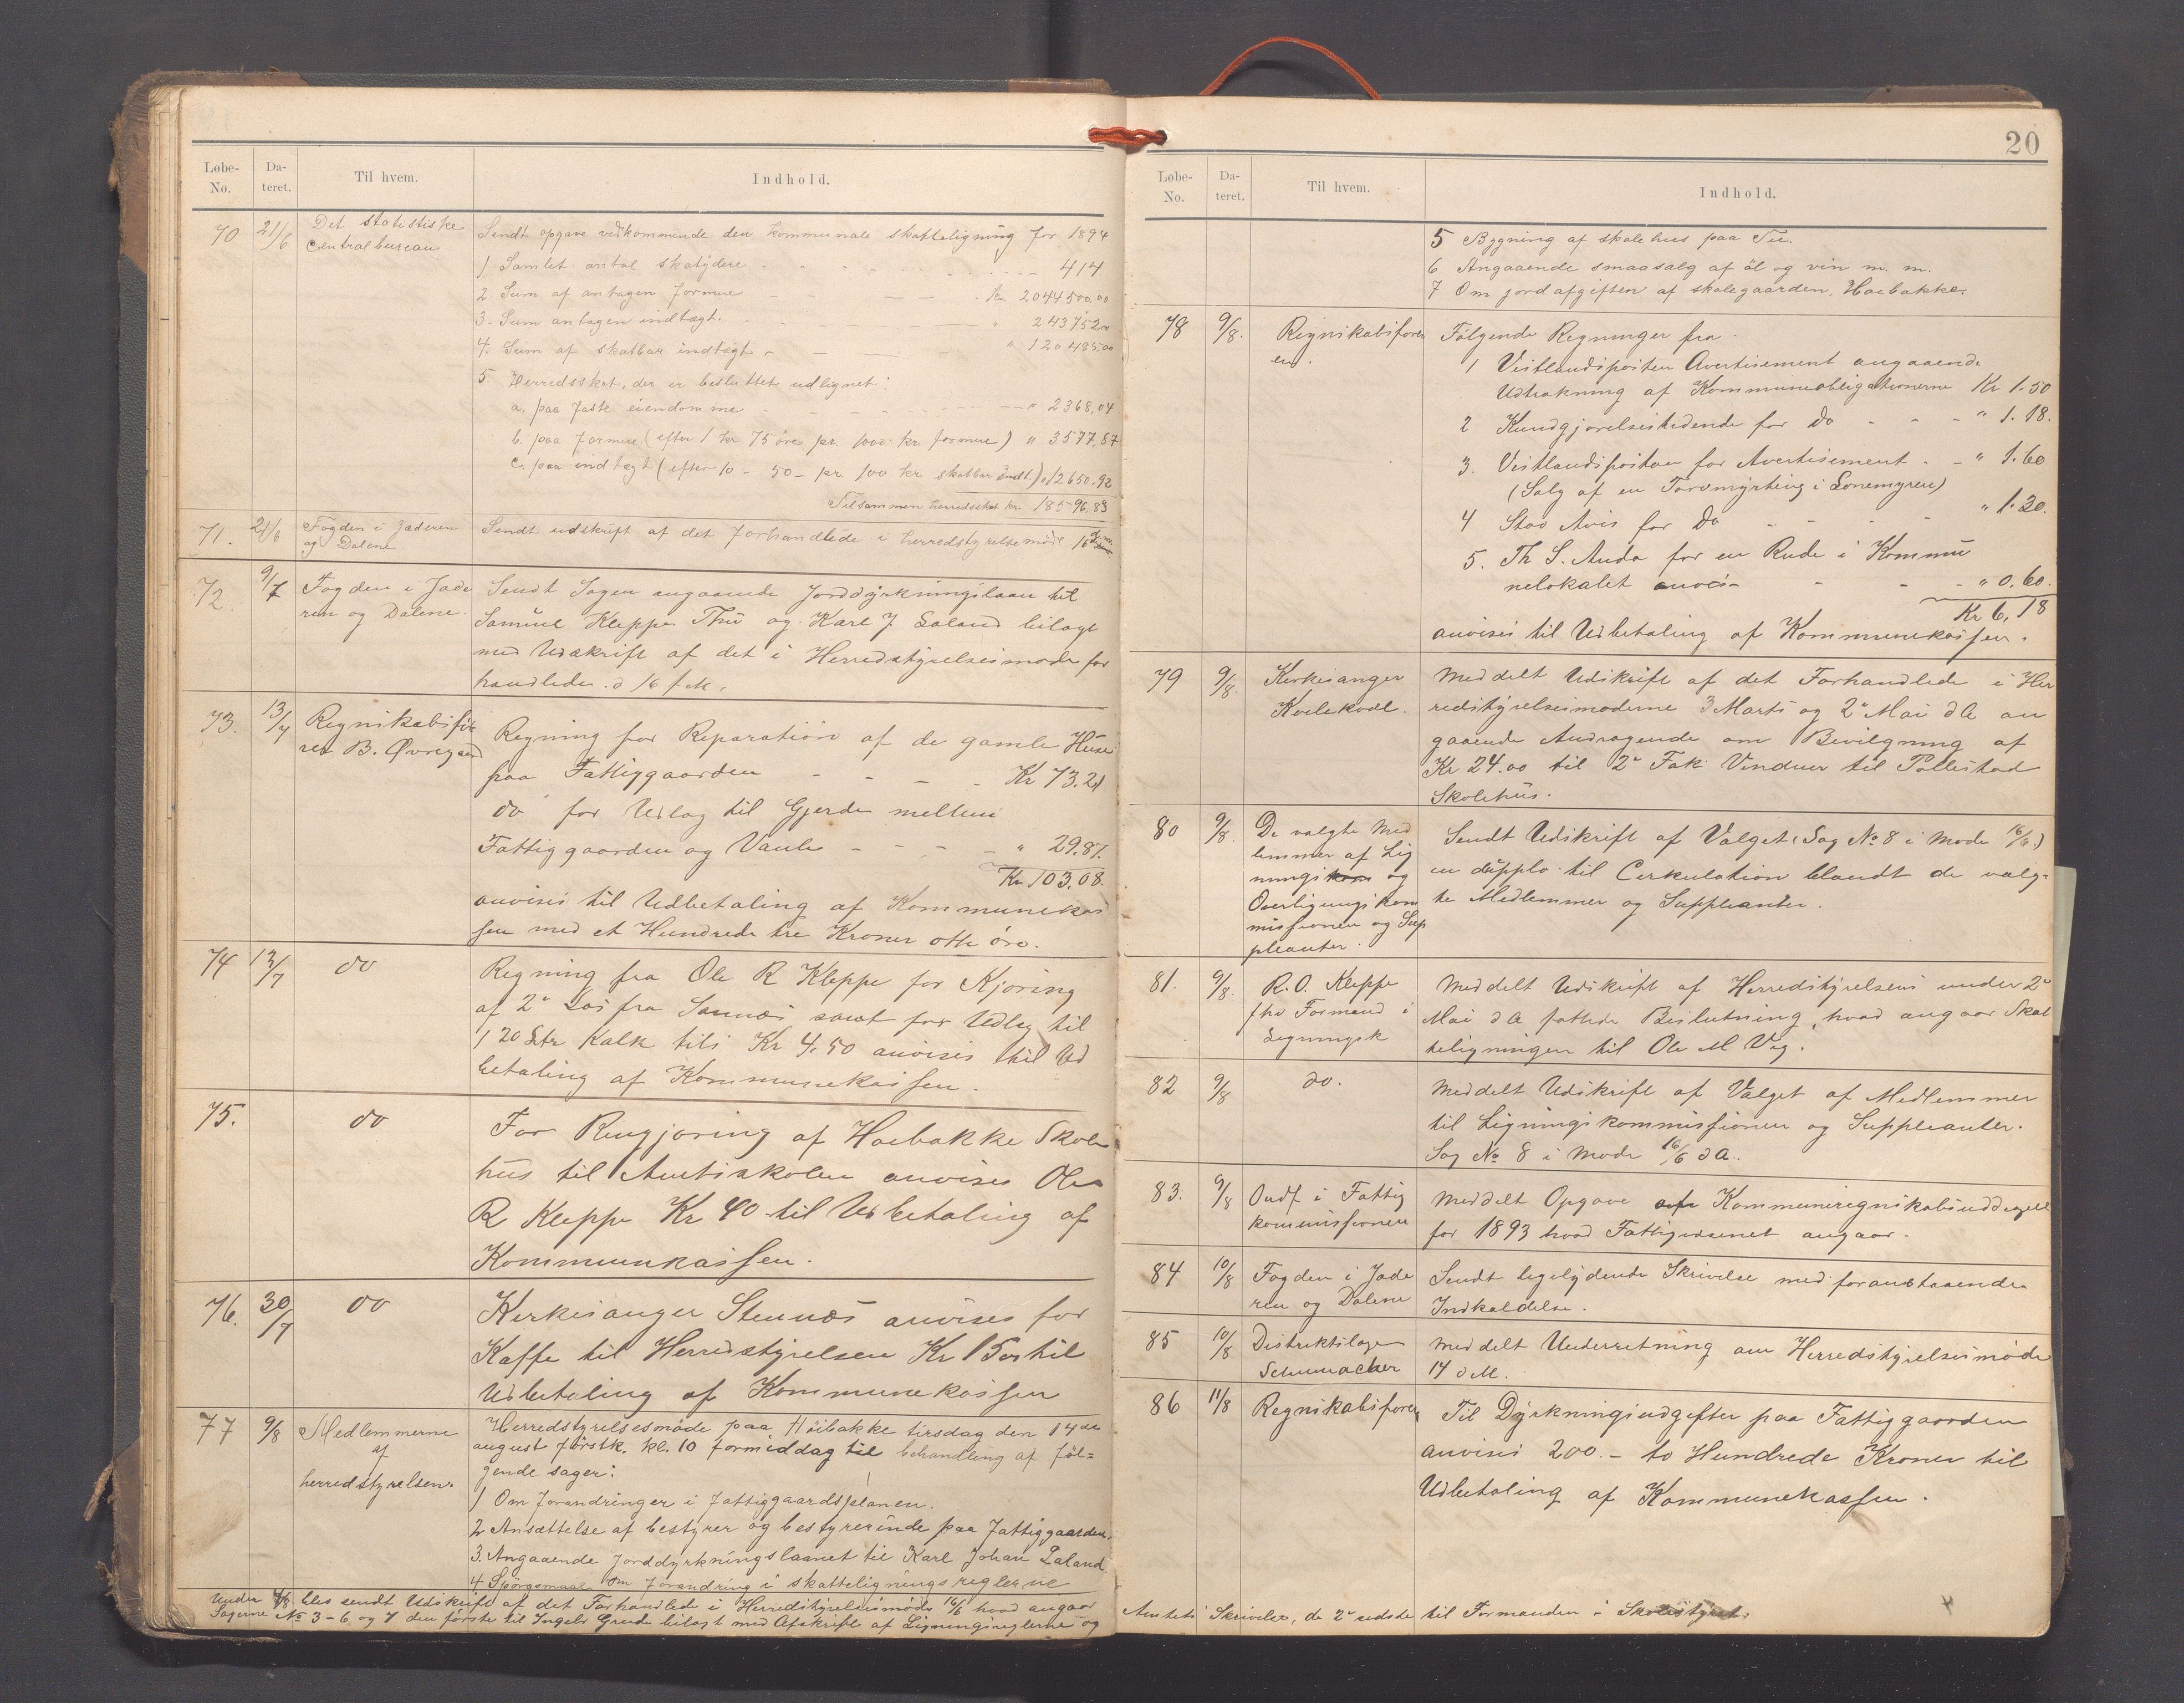 Løbe-No. Da-teret. Til hvem. Indhold.
70 21/6 Det statistiske Sendt opgave vedkommende den kommunale skatteligning for 1894
Centralbureau
1 Samlet antal skatydere 414
2. Sum af antagen formue Kr. 2044500,00
3. Sum antagen indtægt. " 243752,00
4. Sum af skatbar indtægt " 120485,00
5. Herredsskat, der er besluttet udlignet:
a. paa faste eiendomme " 2368,04
b. paa formue (efter 1 kr 75 öre pr. 1000 kr. formue) " 3577,87
c. paa indtægt (efter 10 - 50 - pr. 100 kr. skatbar indt.) " 12650,92
Tilsammen herredsskat kr. 18596.83
71. 21/6 Fogden i Jæderen Sendt udskrift af det forhandlede i herredstyrelsemöde 16
og Dalene
72. 9/7 Fogden i Jæde Sendt Sagen angaaende Jorddyrkningslaan til
ren og Dalene. Samuel Kleppe Thu og Karl J Laland bilagt
med Udskrift af det i Herredstyrelsesmøde for
handlede d 16 f. M.
73. 13/7 Regnskabsfø Regning for Reparation af de gamle Huse
rer B. Øvregaard paa Fattiggaarden Kr 73.21
do for Udlæg til Gjerde mellem
Fattiggaarden og Vaule " 29.87.
Kr 103,08.
anvises til Udbetaling af Kommunekas
sen med et Hundrede tre Kroner otte öre.
74 13/7 do Regning fra Ole R Kleppe for Kjøring
af 2 Las fra Sannæs samt for Udlæg til
120 Ltr Kalk tils Kr 4,50 anvises til Ud
betaling af Kommunekassen.
75. do For Rengjøring af Hoebakke Skole
hus til Amtsskolen anvises Ole
R Kleppe Kr 40 til Udbetaling af
Kommunekassen.
76. 30/7 do Kirkesanger Stennæs anvises for
Kaffe til Herredstyrelsen Kr 15 til
Udbetaling af Kommunekassen
77 9/8 Medlemmerne Herredstyrelsesmöde paa Höibakke tirsdag den 14de
af august förstk. kl. 10 formiddag til behandling af föl=
herredstyrelsen. gende sager:
1 Om forandringer i fattiggaardsplanen.
2 Ansættelse af bestyrer og bestyrerinde paa fattiggaarden.
3. Angaaende jorddyrkningslaanet til Karl Johan Laland
4 Spörgsmaal om forandring i skatteligningsreglerne
Under 4/8 blev sendt Udskrift af det Forhandlede i Herredstyrelsesmøde 16/6 hvad angaar
Sagerne No 3-6 og 7 den første til Ingebr Grude bilagt med Afskrift af Ligningsreglerne og
20
Løbe-No. Da-teret. Til hvem. Indhold.
5 Bygning af skolehus paa Tu.
6 Angaaende smaasalg af öl og vin m. m.
7 Om jordafgiften af skolegaarden, Hoebakke.
78 9/8. Regnskabsfører Følgende Regninger fra
en. 1 Vestlandsposten Avertisement angaaende
Udtrækning af Kommuneobligationerne Kr 1.50
2 Kundgjørelsestidende for do " 1.18.
3. Vestlandsposten for Avertisement " 1.60
(Salg af en Torvmyrteig i Lonemyren)
4 Stav Avis for do " 1.30.
5. Th S. Anda for en Rude i Kommu
nelokalet " 0.60.
Kr 6,18
anvises til Udbetaling af Kommunekassen.
79 9/8 Kirkesanger Meddelt Udskrift af det Forhandlede i Her
Kvelekvæl. redstyrelsesmøderne 3 Marts og 2 Mai d A an
gaaende Andragende om Bevilgning af
Kr 24.00 til 2 Fak Vinduer til Pollestad
Skolehus.
80 9/8. De valgte Med Sendt Udskrift af Valget (Sag No 8 i Møde 16/6)
lemmer af Lig en dupplo til Cirkulation blandt de valg=
nings og te Medlemmer og Suppleanter.
Overligningskom
missionen og Sup
pleanter.
81. 9/8. R. O. Kleppe Meddelt Udskrift af Herredstyrelsens under 2
fhv Formand i Mai d A fattede Beslutning, hvad angaar Skat
Ligningsk teligningen til Ole M Vig.
82 9/8 do. Meddelt Udskrift af Valget af Medlemmer
til Ligningskommissionen og Suppleanter.
Sag No 8 i Møde 16/6 d A.
83. 9/8 Ordf. i Fattig Meddelt Opgave Kommuneregnskabsuddraget
kommissionen for 1893 hvad Fattigvæsenet angaar.
84 10/8 Fogden i Jæde Sendt ligelydende Skrivelse med foranstaaende
ren og Dalene Indkaldelse.
85 10/8 Distriktslæge Meddelt Underretning om Herredstyrelsesmøde
Schumacher 14 d M.
86 11/8 Regnskabsfører Til Dyrkningsudgifter paa Fattiggaarden
anvises 200.- to Hundrede Kroner til
Udbetaling af Kommunekassen.
Amtets Skrivelse, de 2 sidste til Formanden i Skolestyret.